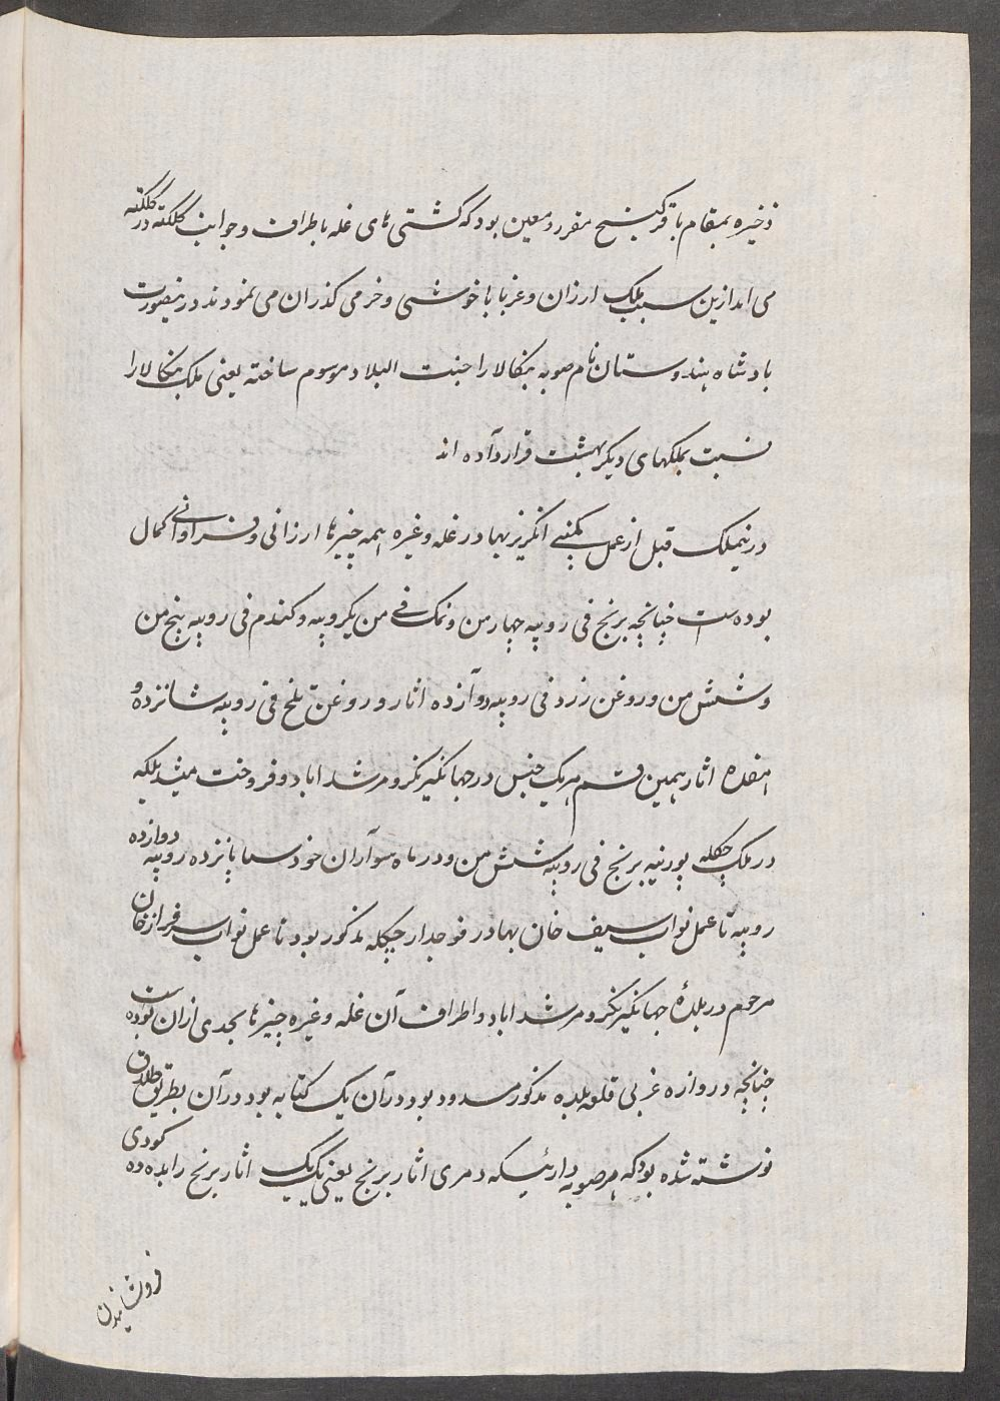 ذخیره بمقام باقرکنج مقرر و معین بود که کشتی های غله باطراف و جوانب کلکته در کلکته
می امد ازین سبب ملک ارزان و غربا با خوشی و خرمی کذران می نمودند درینصورت
بادشاه هندوستان نام صوبه بنکالا را جنت البلاد موسوم ساخته یعنی ملک بنکالا را
نسبت بملکهای دیکر بهشت قرار داده اند
درینملک قبل از عمل کمپنی انکریز بهادر غله و غیره همه چیزها ارزانی و فراوانی کمال
بوده است چنانچه برنج فی روپیه چهار من و نمک فی من یکروپیه و کندم فی روپیه پنج من
و شش من و روغن زرد فی روپیه دوآزده اثار و روغن تلخ فی روپیه شانزده و
هفده اثار همین قسم هر یک جنس در جهانکیرنکر و مرشداباد و فروخت میشد بلکه
در ملک چکله پورنیه برنج فی روپیه شش من و درماه سوآران خود سما پانزده روپیه دوازده
روپیه تا عمل نواب سیف خان بهادر فوجدار چکله مذکور بود تا عمل نواب سرفرازخان
مرحوم در بلدهٔ جهانکیرنکر و مرشداباد و اطراف آن غله و غیره چیزها بحدی ارزان بوده است
چنانچه دروازه غربی قلعه بلده مذکور مسدود بود در آن یک کتابه بود در آن بطریق طلاق
نوشته شده بود که هر صوبه داریکه دمری اثار برنج یعنی یک یک اثار برنج را بده ده کودی
فروشانیدن